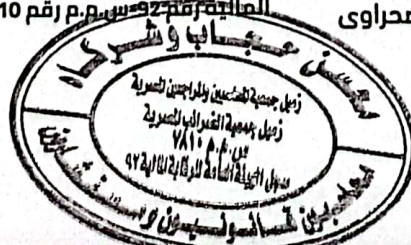 صحراوى
المالية رقم 92 س.م.م رقم 10
محسن حجاب وشركاه
زميل جمعية المحاسبين والمراجعين المصرية
زميل جمعية الضرائب المصرية
س.م.م ٧٨١٠
سجل الهيئة العامة للرقابة المالية ٩٢
محاسبون قانونيون